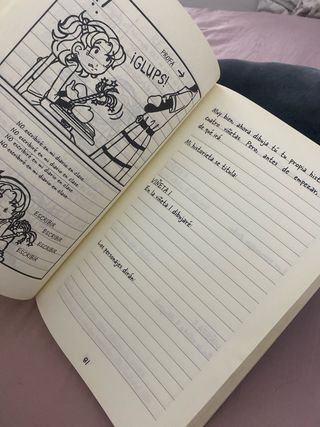 PROFA
¡GLUPS!
NO escribiré en mi diario en clase
NO escribiré en mi diario en clase
NO escribiré en mi diario en clase
NO escribiré en mi diario en clase
ESCRIBIR
ESCRIBIR
ESCRIBIR
ESCRIBIR
Muy bien, ahora dibuja tú tu propia
cuatro viñetas. Pero, antes de empezar,
de qué irá.
Mi historieta se titula:
VIÑETA 1
En la viñeta 1 dibujaré:
Los personajes dirán: